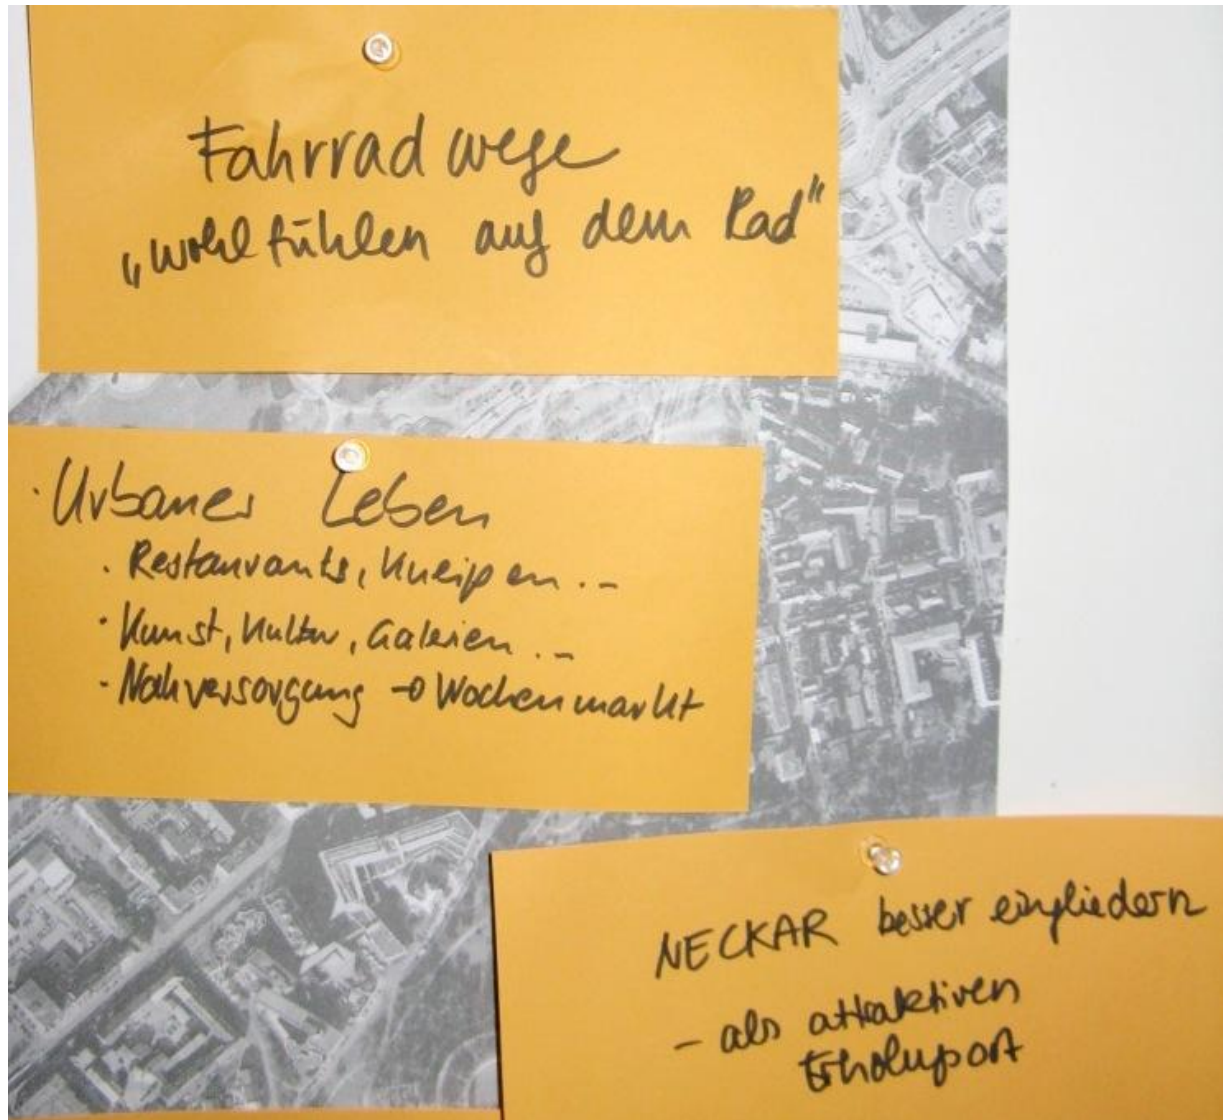 Fahrradwege
„wohlfühlen auf dem Rad"
· Urbanes Leben
· Restaurants, Kneipen...
· Kunst, Kultur, Galerien...
· Nahversorgung → Wochenmarkt
NECKAR besser eingliedern
- als attraktiven
Erholungsort